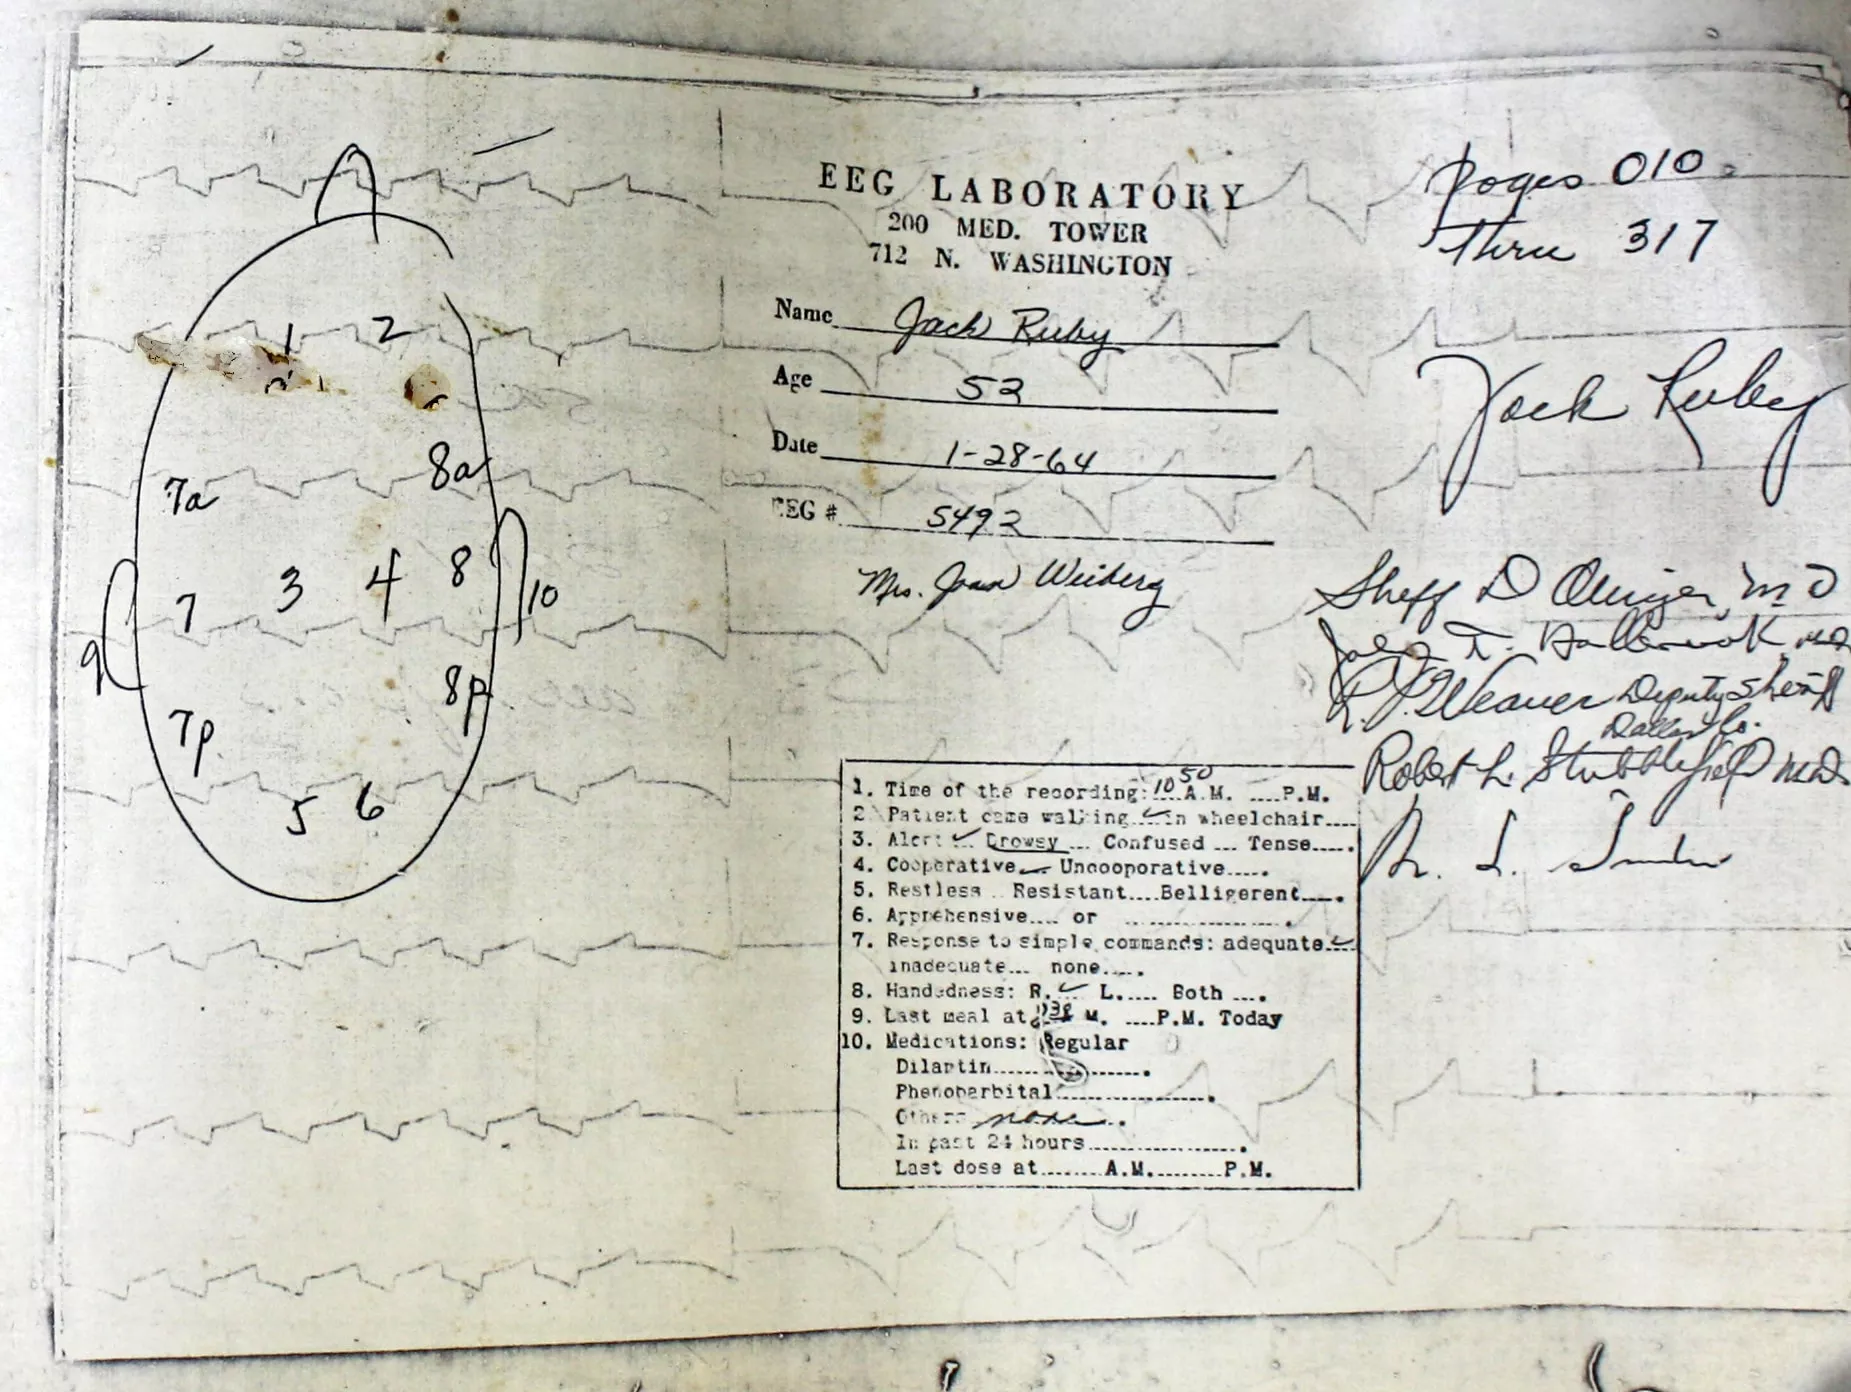 1 2
7a 8a
7 3 4 8 10
9
7p 8p
5 6
EEG LABORATORY
200 MED. TOWER
712 N. WASHINGTON
Name Jack Ruby
Age 52
Date 1-28-64
EEG # 5492
Mrs. Joan Weiberg
Pages 010
thru 317
Jack Ruby
Sheff D Olinger, MD
T. Holbrook MD
R. J. Weaver Deputy Sheriff
Dallas Co.
Robert L. Stubblefield M.D.
R. L.
1. Time of the recording: 10 50 A.M. ....P.M.
2 Patient came walking ✓ in wheelchair....
3. Alert ✓ Drowsy ... Confused ... Tense.....
4. Cooperative ✓ Uncooporative.....
5. Restless .. Resistant....Belligerent.....
6. Apprehensive.... or ....................
7. Response to simple commands: adequate ✓
inadequate... none.....
8. Handedness: R. ✓ L..... Both ....
9. Last meal at M. ....P.M. Today
10. Medications: Regular
Dilantin....................
Phenobarbital....................
Others none
In past 24 hours....................
Last dose at........A.M.........P.M.